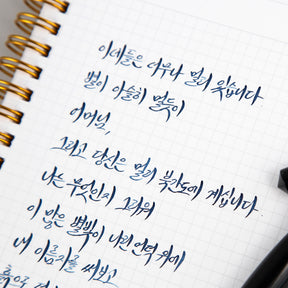 이네들은 너무나 멀리 있습니다
별이 아슬히 멀듯이
어머님,
그리고 당신은 멀리 북간도에 계십니다.
나는 무엇인지 그리워
이 많은 별빛이 나린 언덕 위에
내 이름자를 써보고
흙으로